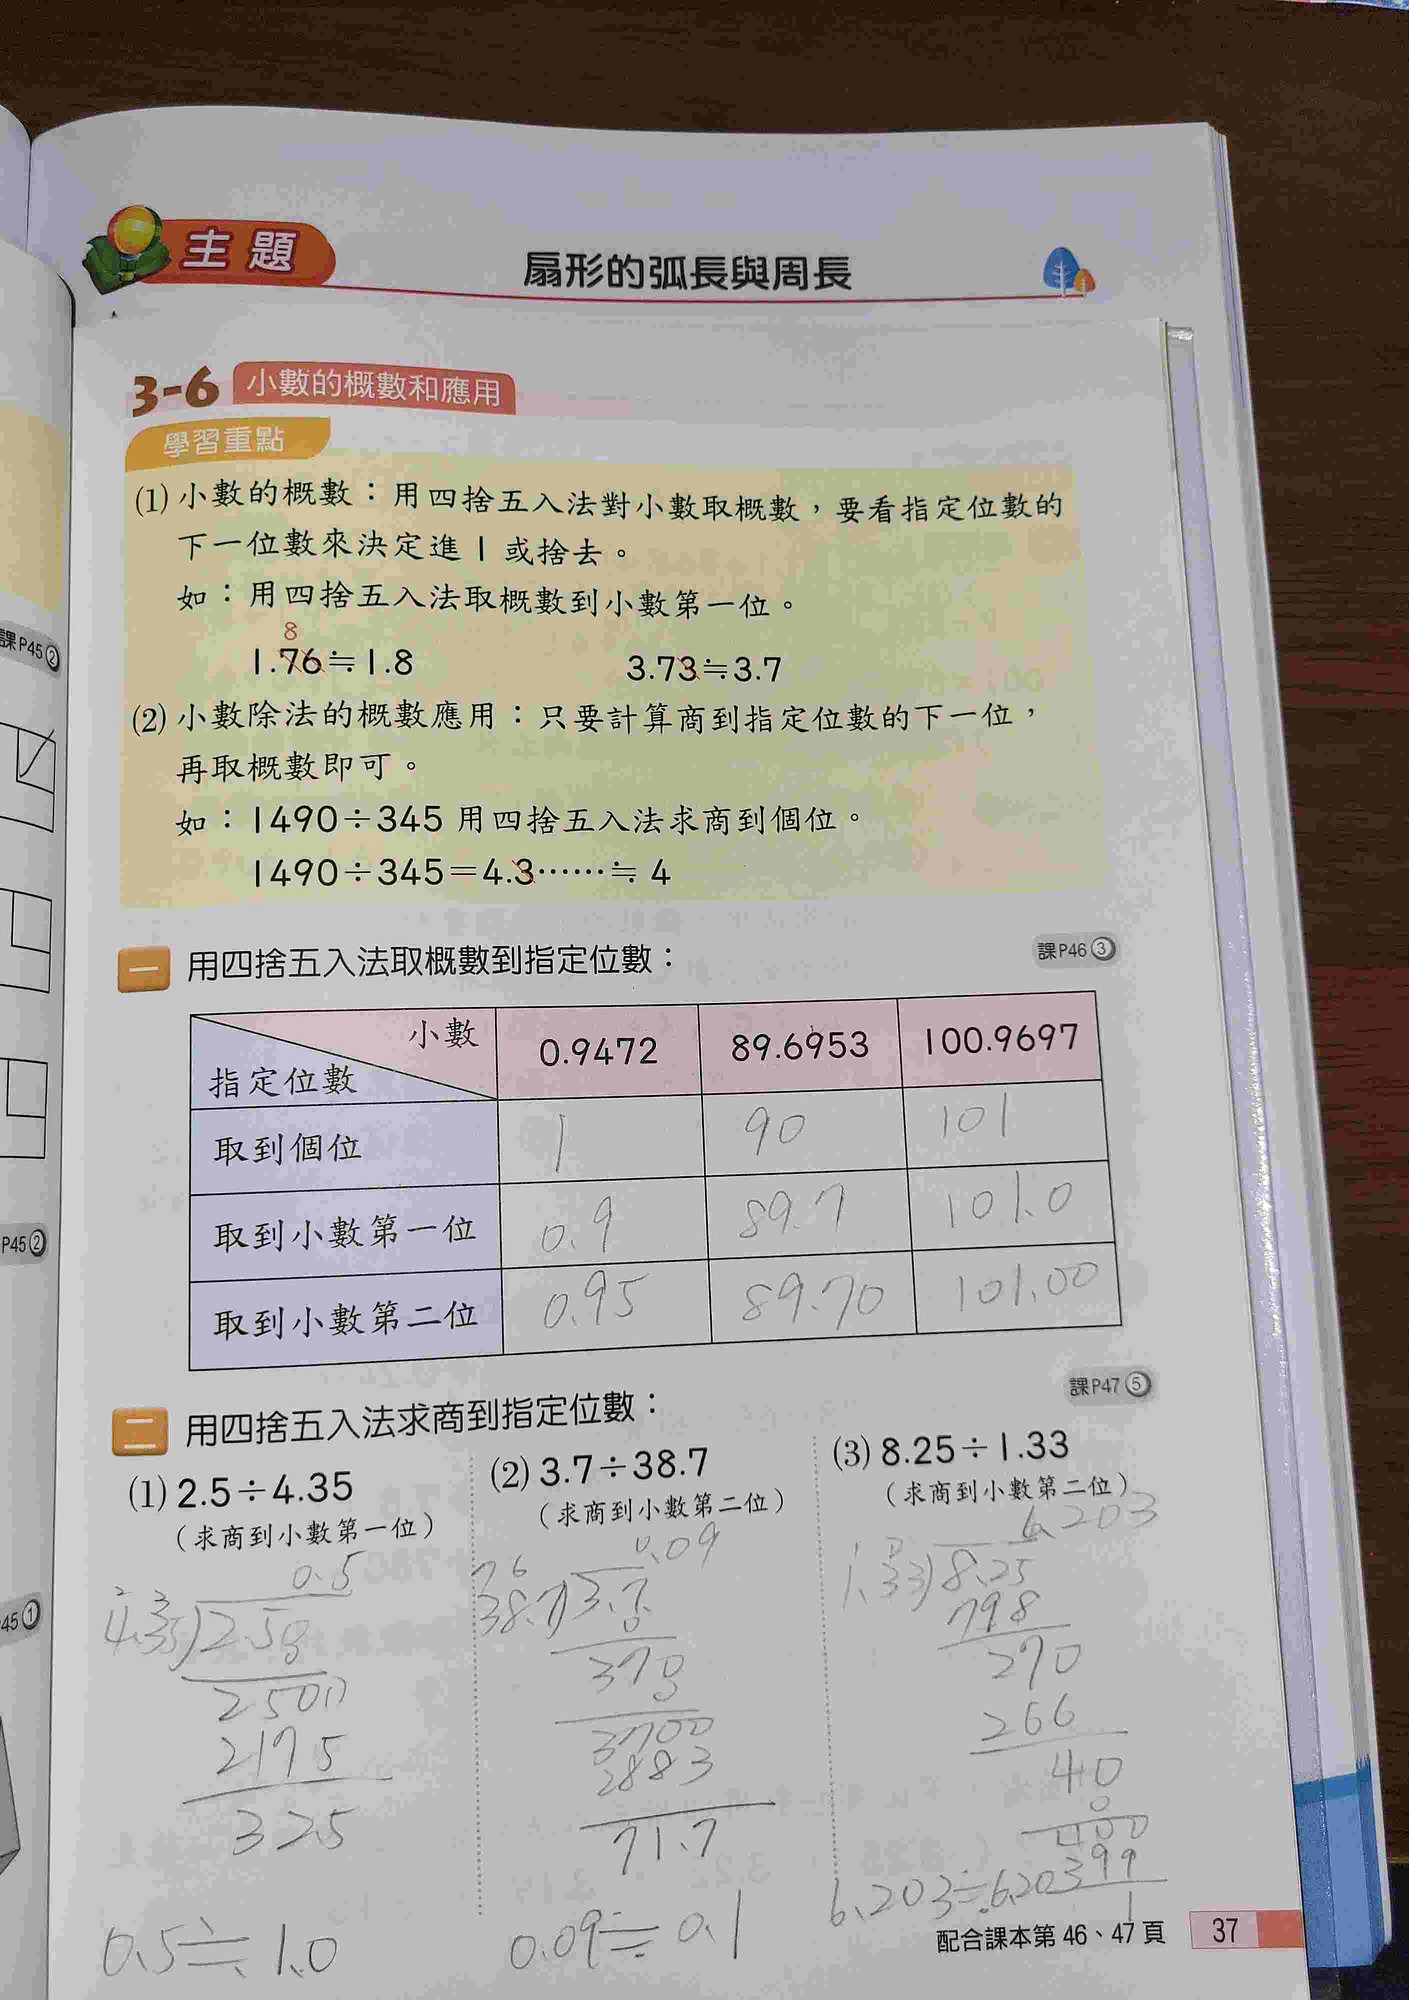 主題
扇形的弧長與周長
3-6 小數的概數和應用
學習重點
(1) 小數的概數：用四捨五入法對小數取概數，要看指定位數的
下一位數來決定進1或捨去。
如：用四捨五入法取概數到小數第一位。
8
1.76≒1.8 3.73≒3.7
(2) 小數除法的概數應用：只要計算商到指定位數的下一位，
再取概數即可。
如：1490÷345 用四捨五入法求商到個位。
1490÷345＝4.3……≒ 4
一 用四捨五入法取概數到指定位數：
課P46③
小數 0.9472 89.6953 100.9697
指定位數
取到個位 1 90 101
取到小數第一位 0.9 89.7 101.0
取到小數第二位 0.95 89.70 101.00
課P47⑤
二 用四捨五入法求商到指定位數：
(1) 2.5÷4.35 (2) 3.7÷38.7 (3) 8.25÷1.33
（求商到小數第一位） （求商到小數第二位） （求商到小數第二位）
0.5 0.09 6.203
8.25
798
2500 370 270
2175 3700 266
325 2883 40
71.7 400
399
1
0.5≒1.0 0.09≒0.1 6.203≒6.20
配合課本第 46、47 頁 37
課P45②
P45②
45①